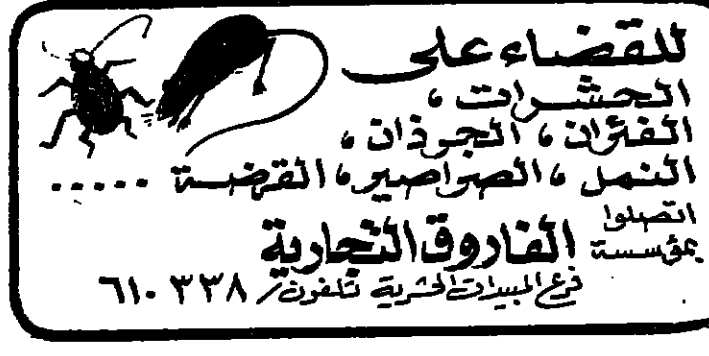 للقضاء على
الحشرات،
الفئران، الجرذان،
النمل، الصراصير، القرضة .....
اتصلوا
بمؤسسة الفاروق التجارية
فرع المبيدات الحشرية تلفون / ٦١٠٣٣٨